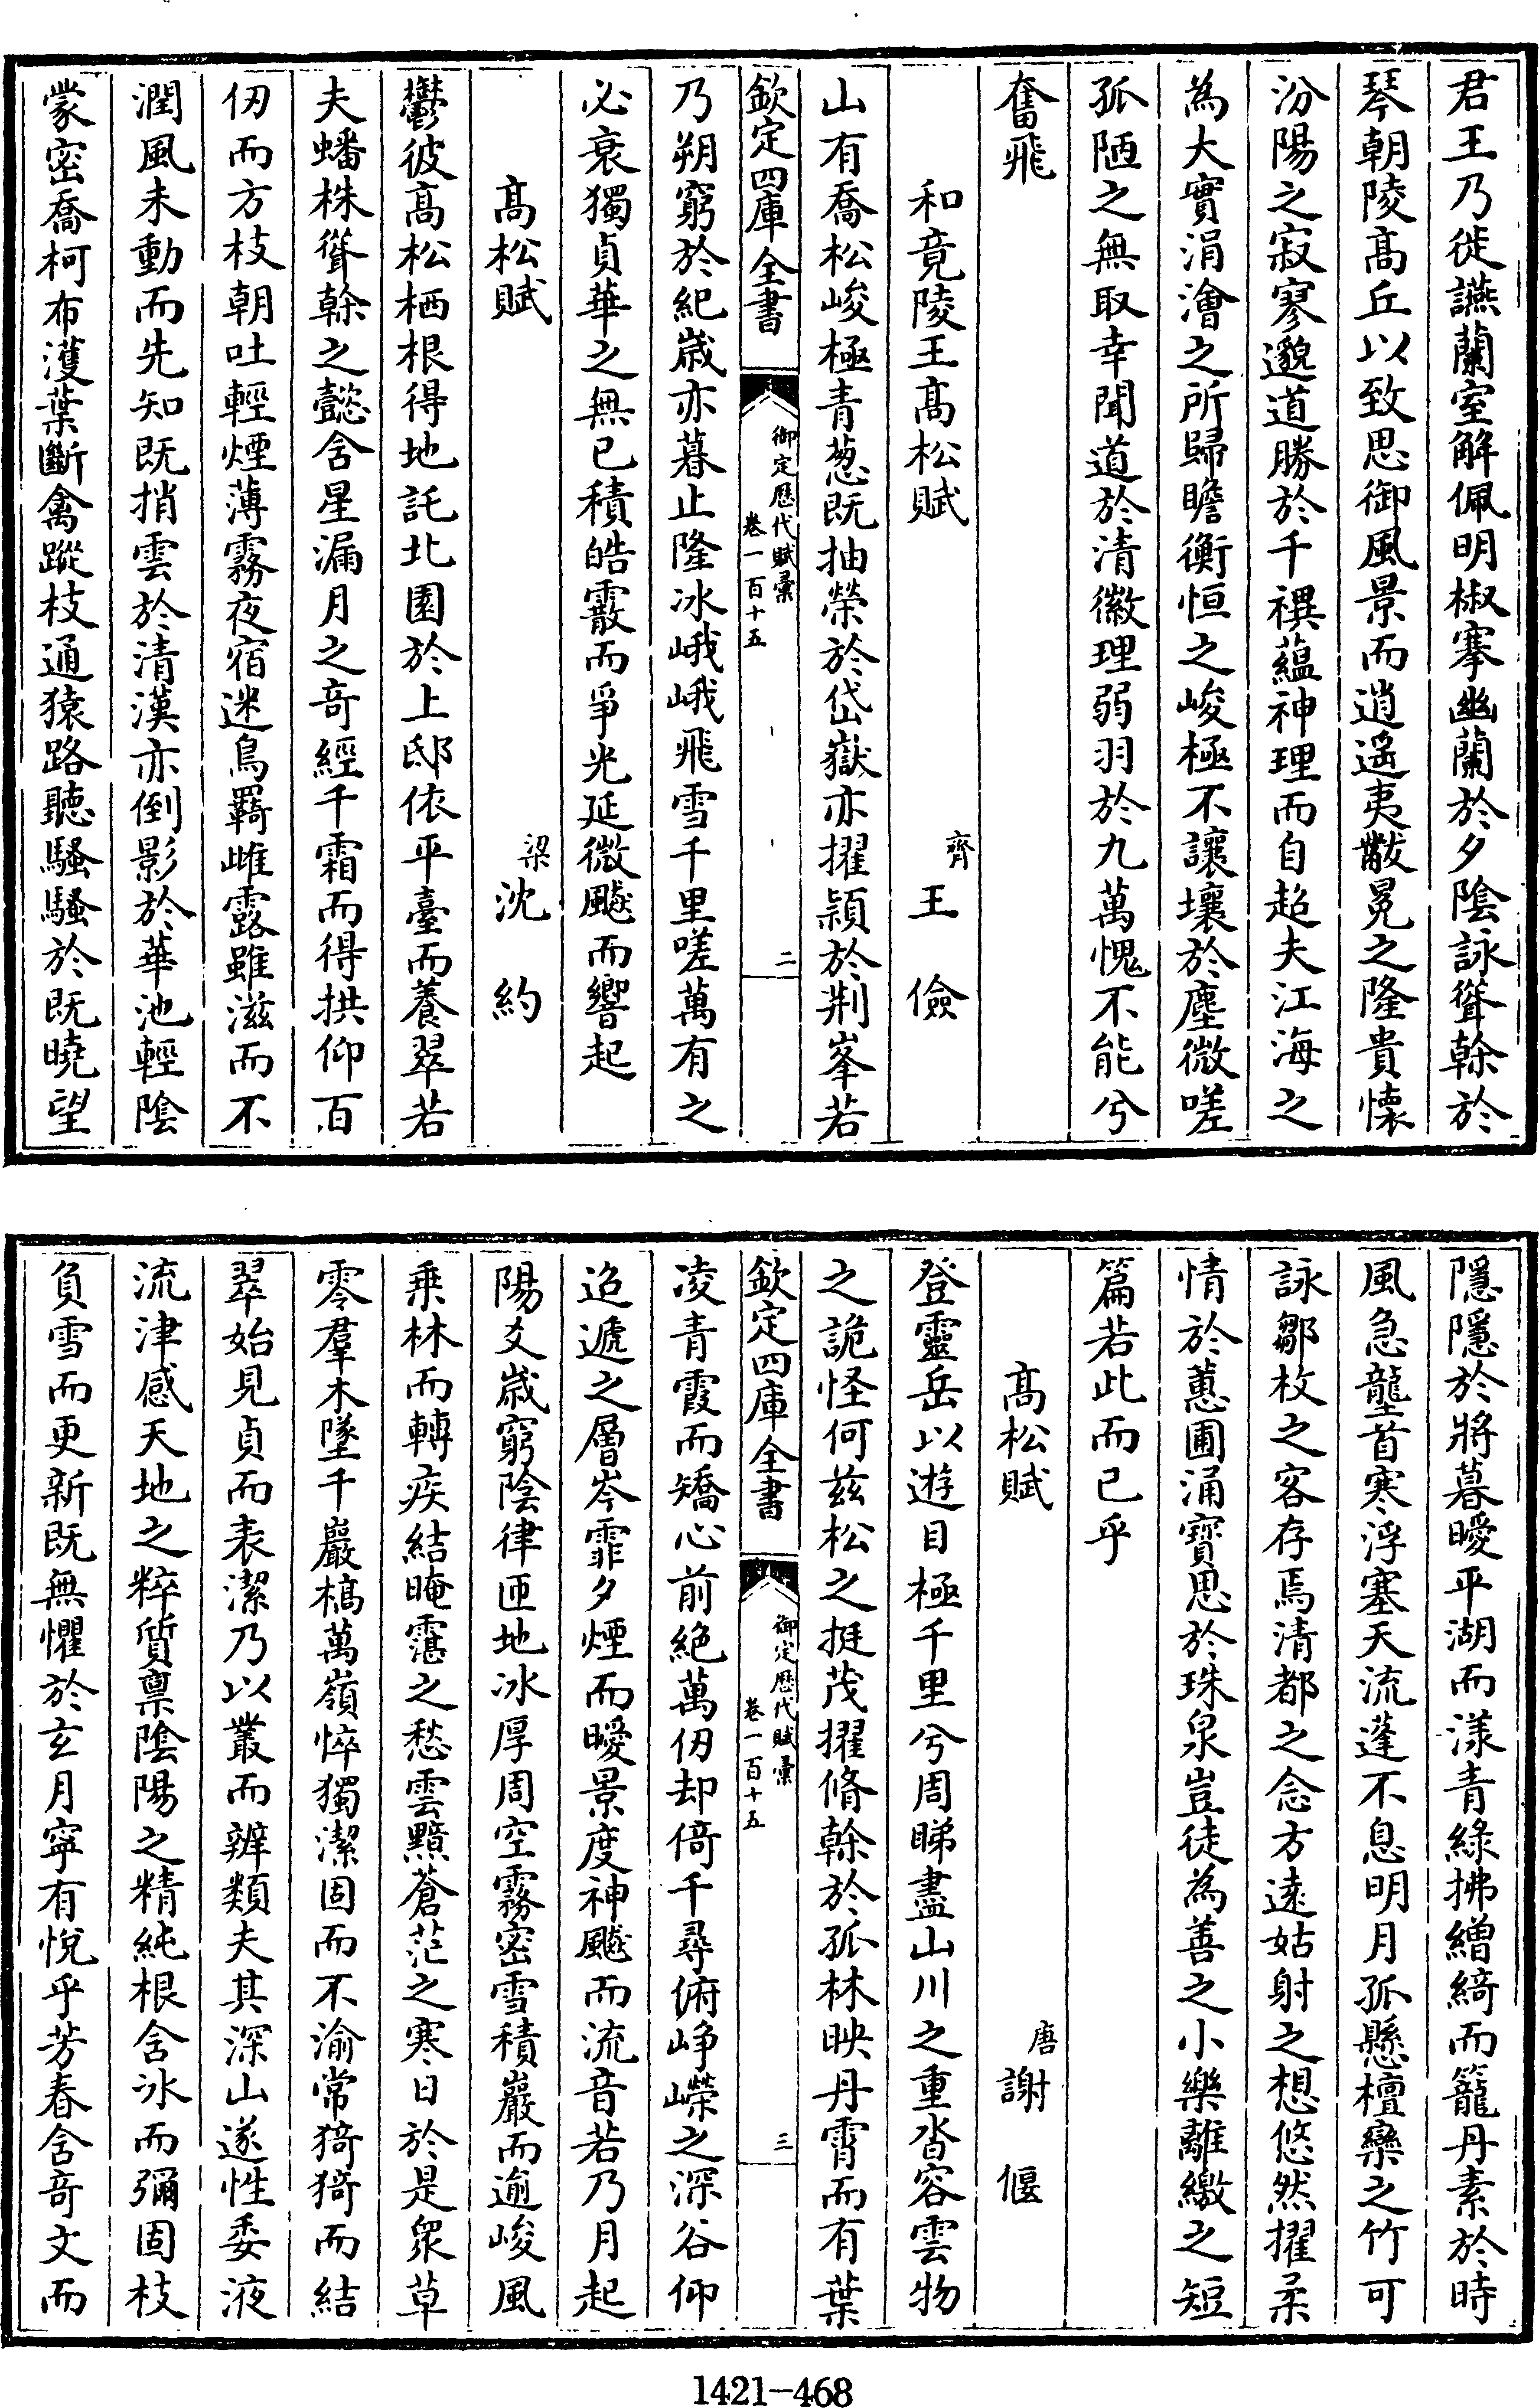 君王乃徙讌蘭室解佩明椒搴幽蘭於夕陰詠聳榦於
琴朝陵髙丘以致思御風景而逍遥夷黻冕之隆貴懐
汾陽之寂寥邈道勝於千禩蘊神理而自超夫江海之
為大實涓澮之所歸瞻衡恒之峻極不讓壤於塵微嗟
孤陋之無取幸聞道於清徽理弱羽於九萬愧不能兮
奮飛
和竟陵王髙松賦 齊王儉
山有喬松峻極青葱既抽榮於岱嶽亦擢頴於荆峯若
欽定四庫全書 御定歴代賦彙 卷一百十五 二
乃朔窮於紀歳亦暮止隆冰峨峨飛雪千里嗟萬有之
必衰獨貞華之無已積皓霰而爭光延微飇而響起
髙松賦 梁沈約
鬱彼髙松栖根得地託北園於上邸依平臺而養翠若
夫蟠株聳榦之懿含星漏月之竒經千霜而得拱仰百
仞而方枝朝吐輕煙薄霧夜宿迷鳥羇雌露雖滋而不
潤風未動而先知既捎雲於清漢亦倒影於華池輕陰
蒙密喬柯布濩葉斷禽蹤枝通猿路聽騷騷於既曉望
隱隱於將暮曖平湖而漾青綠拂繒綺而籠丹素於時
風急壟首寒浮塞天流蓬不息明月孤懸檀欒之竹可
詠鄒枚之客存焉清都之念方遠姑射之想悠然擢柔
情於蕙圃涌寳思於珠泉豈徒為善之小樂離繳之短
篇若此而已乎
髙松賦 唐謝偃
登靈岳以遊目極千里兮周睇盡山川之重沓容雲物
之詭怪何兹松之挺茂擢脩榦於孤林映丹霄而有葉
欽定四庫全書 御定歴代賦彙 卷一百十五 三
凌青霞而矯心前絶萬仞却倚千尋俯崢嶸之深谷仰
迢遞之層岑霏夕煙而曖景度神飇而流音若乃月起
陽爻歳窮陰律匝地冰厚周空霧密雪積巖而逾峻風
乗林而轉疾結晻靄之愁雲黯蒼茫之寒日於是衆草
零羣木墜千巖槁萬嶺悴獨潔固而不渝常猗猗而結
翠始見貞而表潔乃以叢而辨類夫其深山遂性委液
流津感天地之粹質禀陰陽之精純根含冰而彌固枝
負雪而更新既無懼於玄月寧有悅乎芳春含竒文而
1421-468